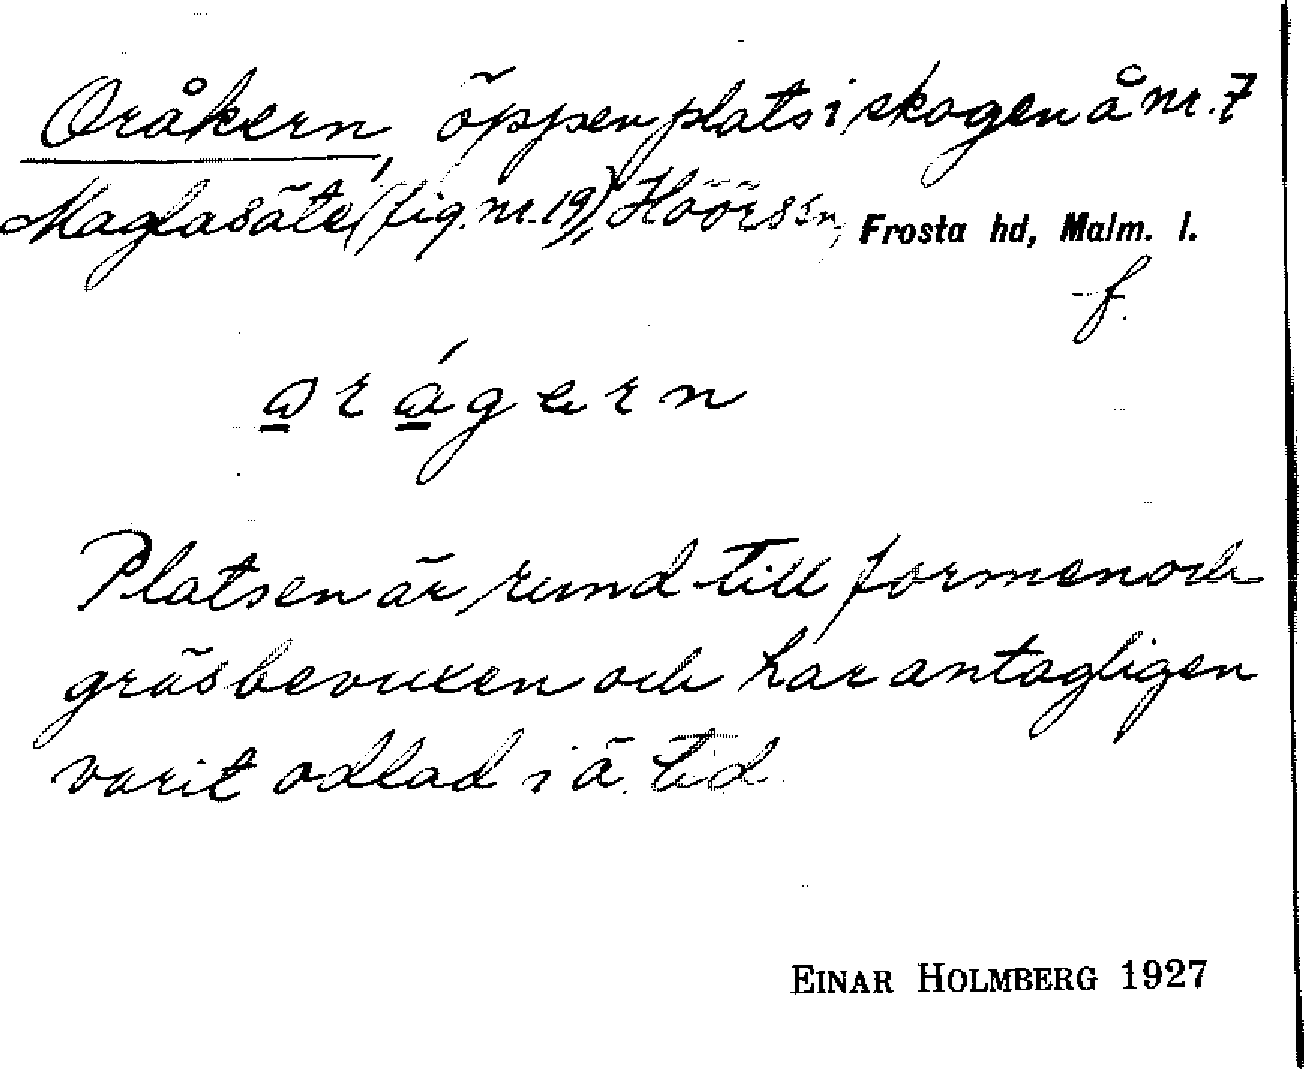 Oråkern, öppen plats i skogen å nr. 7
Maglasäte (fig. nr. 19), Höörs sn, Frosta hd, Malm. l.
f.
a̲ r á̲ g e r n
Platsen är rund till formen och
gräsbevuxen och har antagligen
varit odlad i ä. tid.
EINAR HOLMBERG 1927